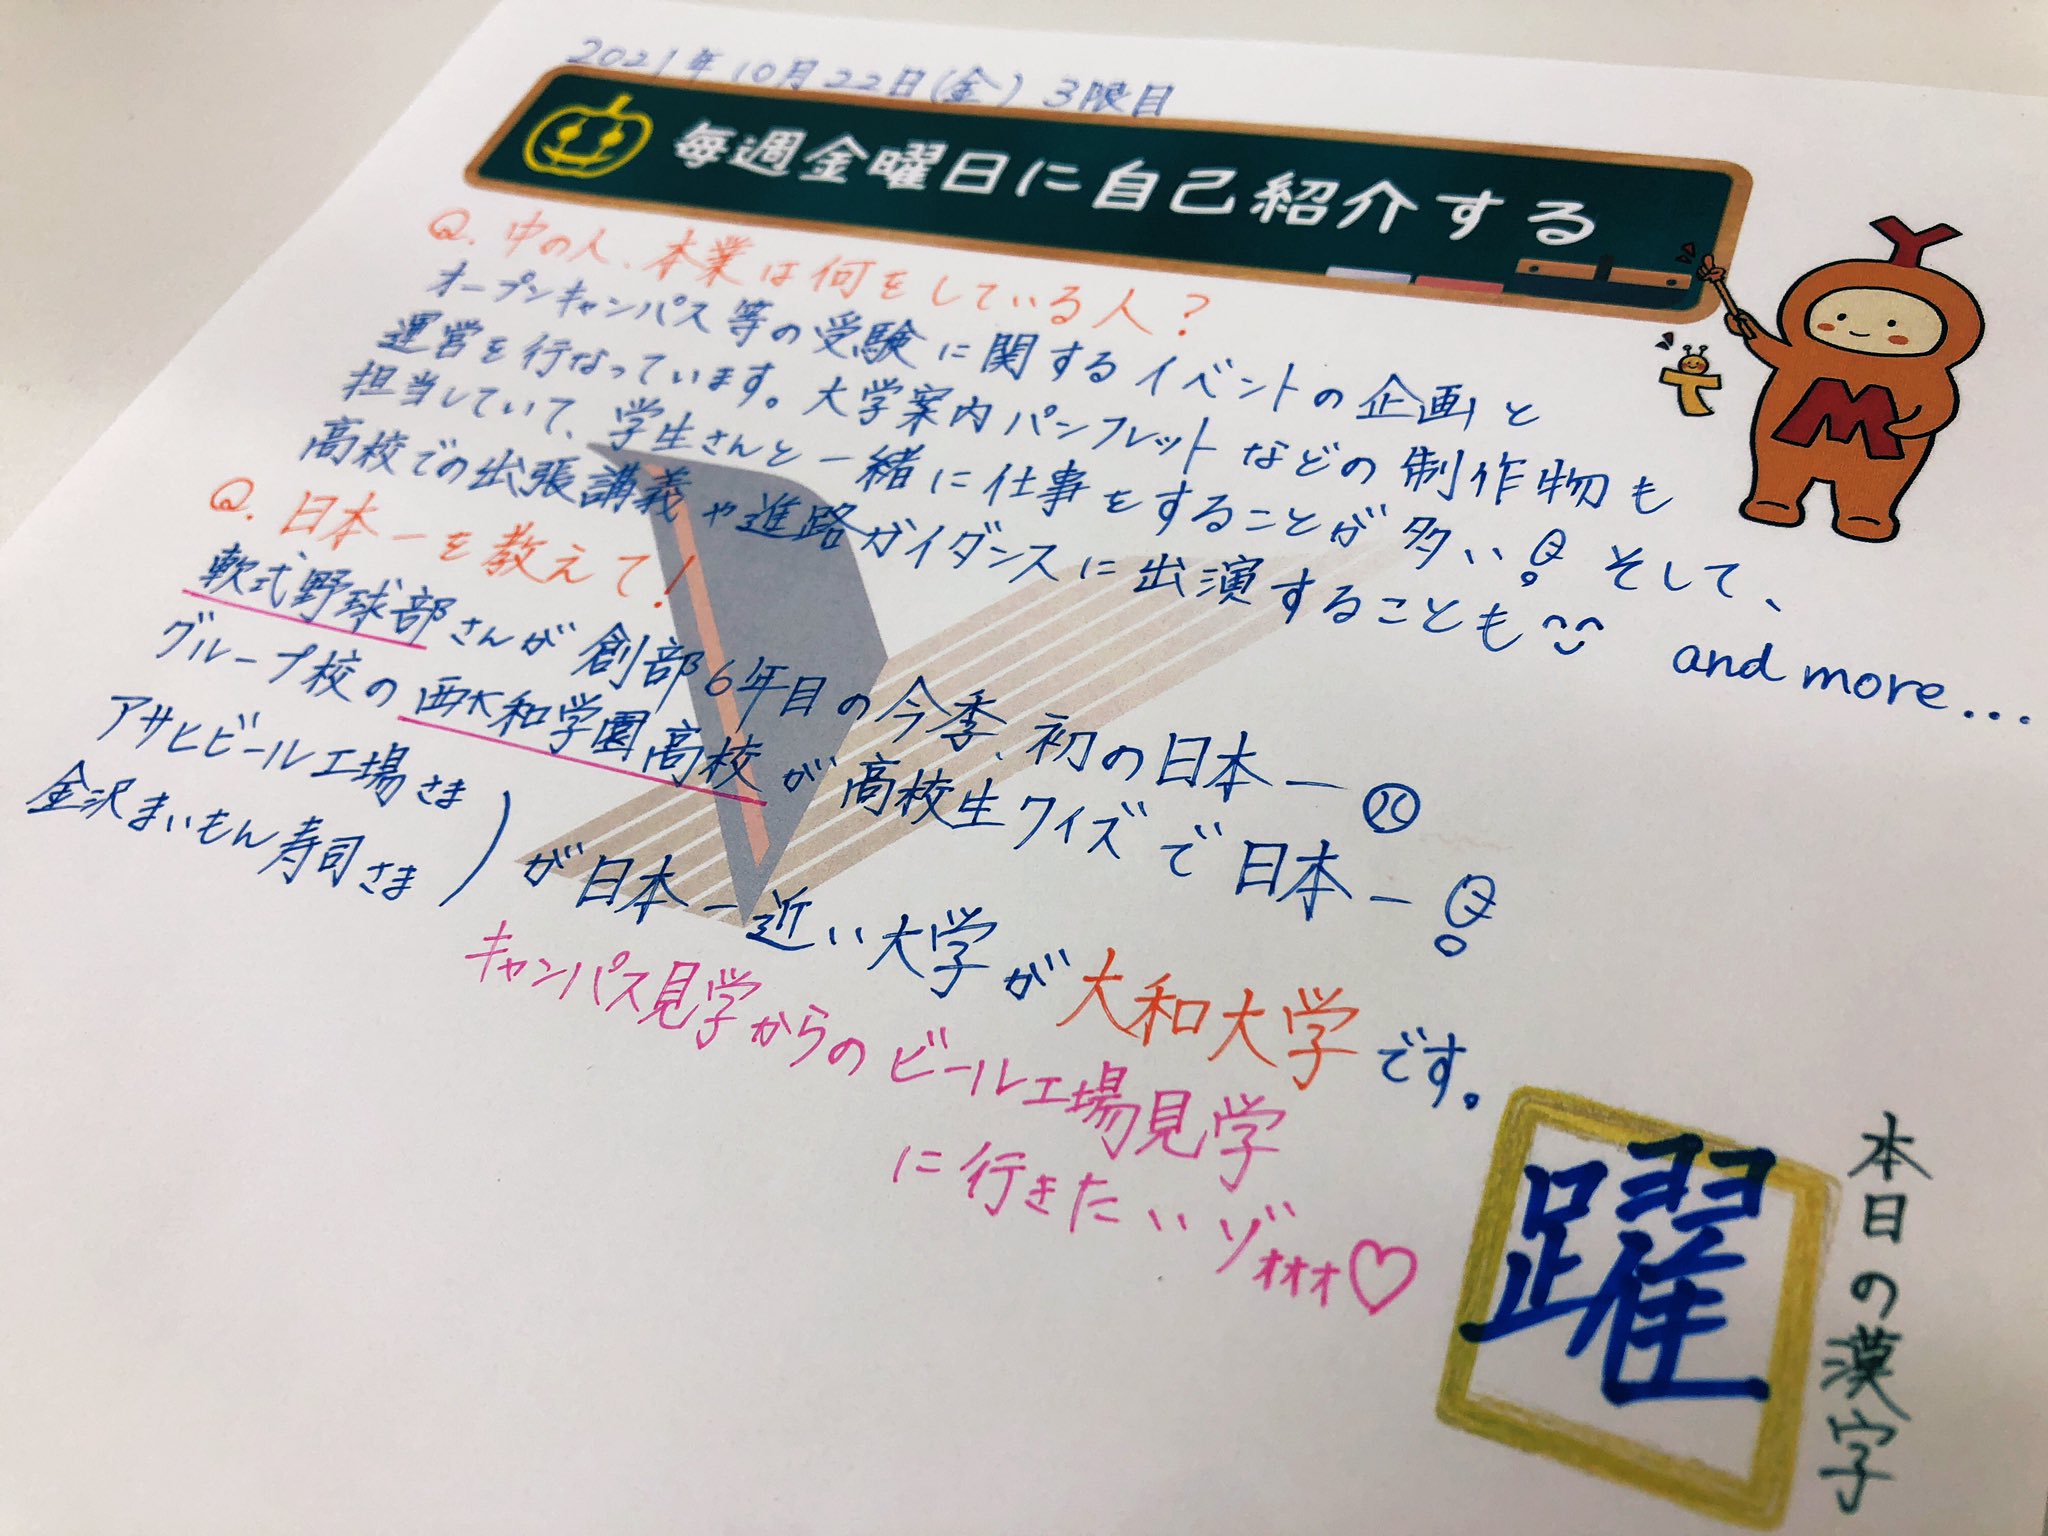 2021年10月22日(金) 3限目
毎週金曜日に自己紹介する
Q. 中の人、本業は何をしている人?
オープンキャンパス等の受験に関するイベントの企画と
運営を行なっています。大学案内パンフレットなどの制作物も
担当していて、学生さんと一緒に仕事をすることが多い そして、
高校での出張講義や進路ガイダンスに出演することも and more...
Q. 日本一を教えて!
軟式野球部さんが創部6年目の今季、初の日本一
グループ校の西大和学園高校が高校生クイズで日本一
アサヒビール工場さま
金沢まいもん寿司さま
が日本一近い大学が大和大学です。
キャンパス見学からのビール工場見学
に行きたいゾォォォ♡
本日の漢字
躍
M